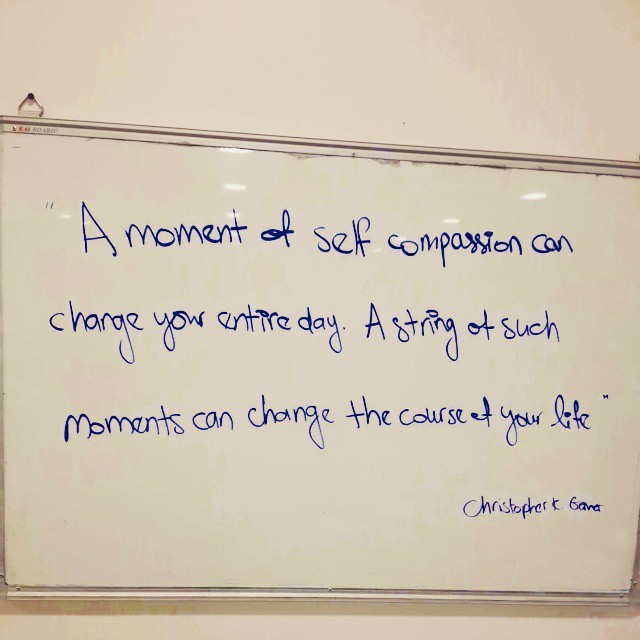 Kat BOARD
"A moment of self compassion can
change your entire day. A string of such
moments can change the course of your life"
Christopher K.